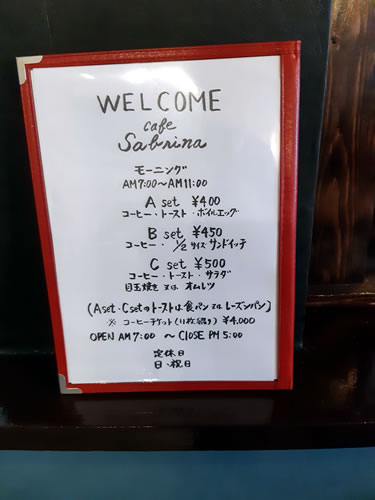 WELCOME
cafe
Sabrina
モーニング
AM7:00〜AM11:00
A set ¥400
コーヒー・トースト・ボイルエッグ
B set ¥450
コーヒー・1/2サイズサンドイッチ
C set ¥500
コーヒー・トースト・サラダ
目玉焼き又はオムレツ
(Aset・Csetのトーストは食パン又はレーズンパン)
※ コーヒーチケット(11枚綴り) ¥4,000
OPEN AM7:00 〜 CLOSE PM5:00
定休日
日・祝日